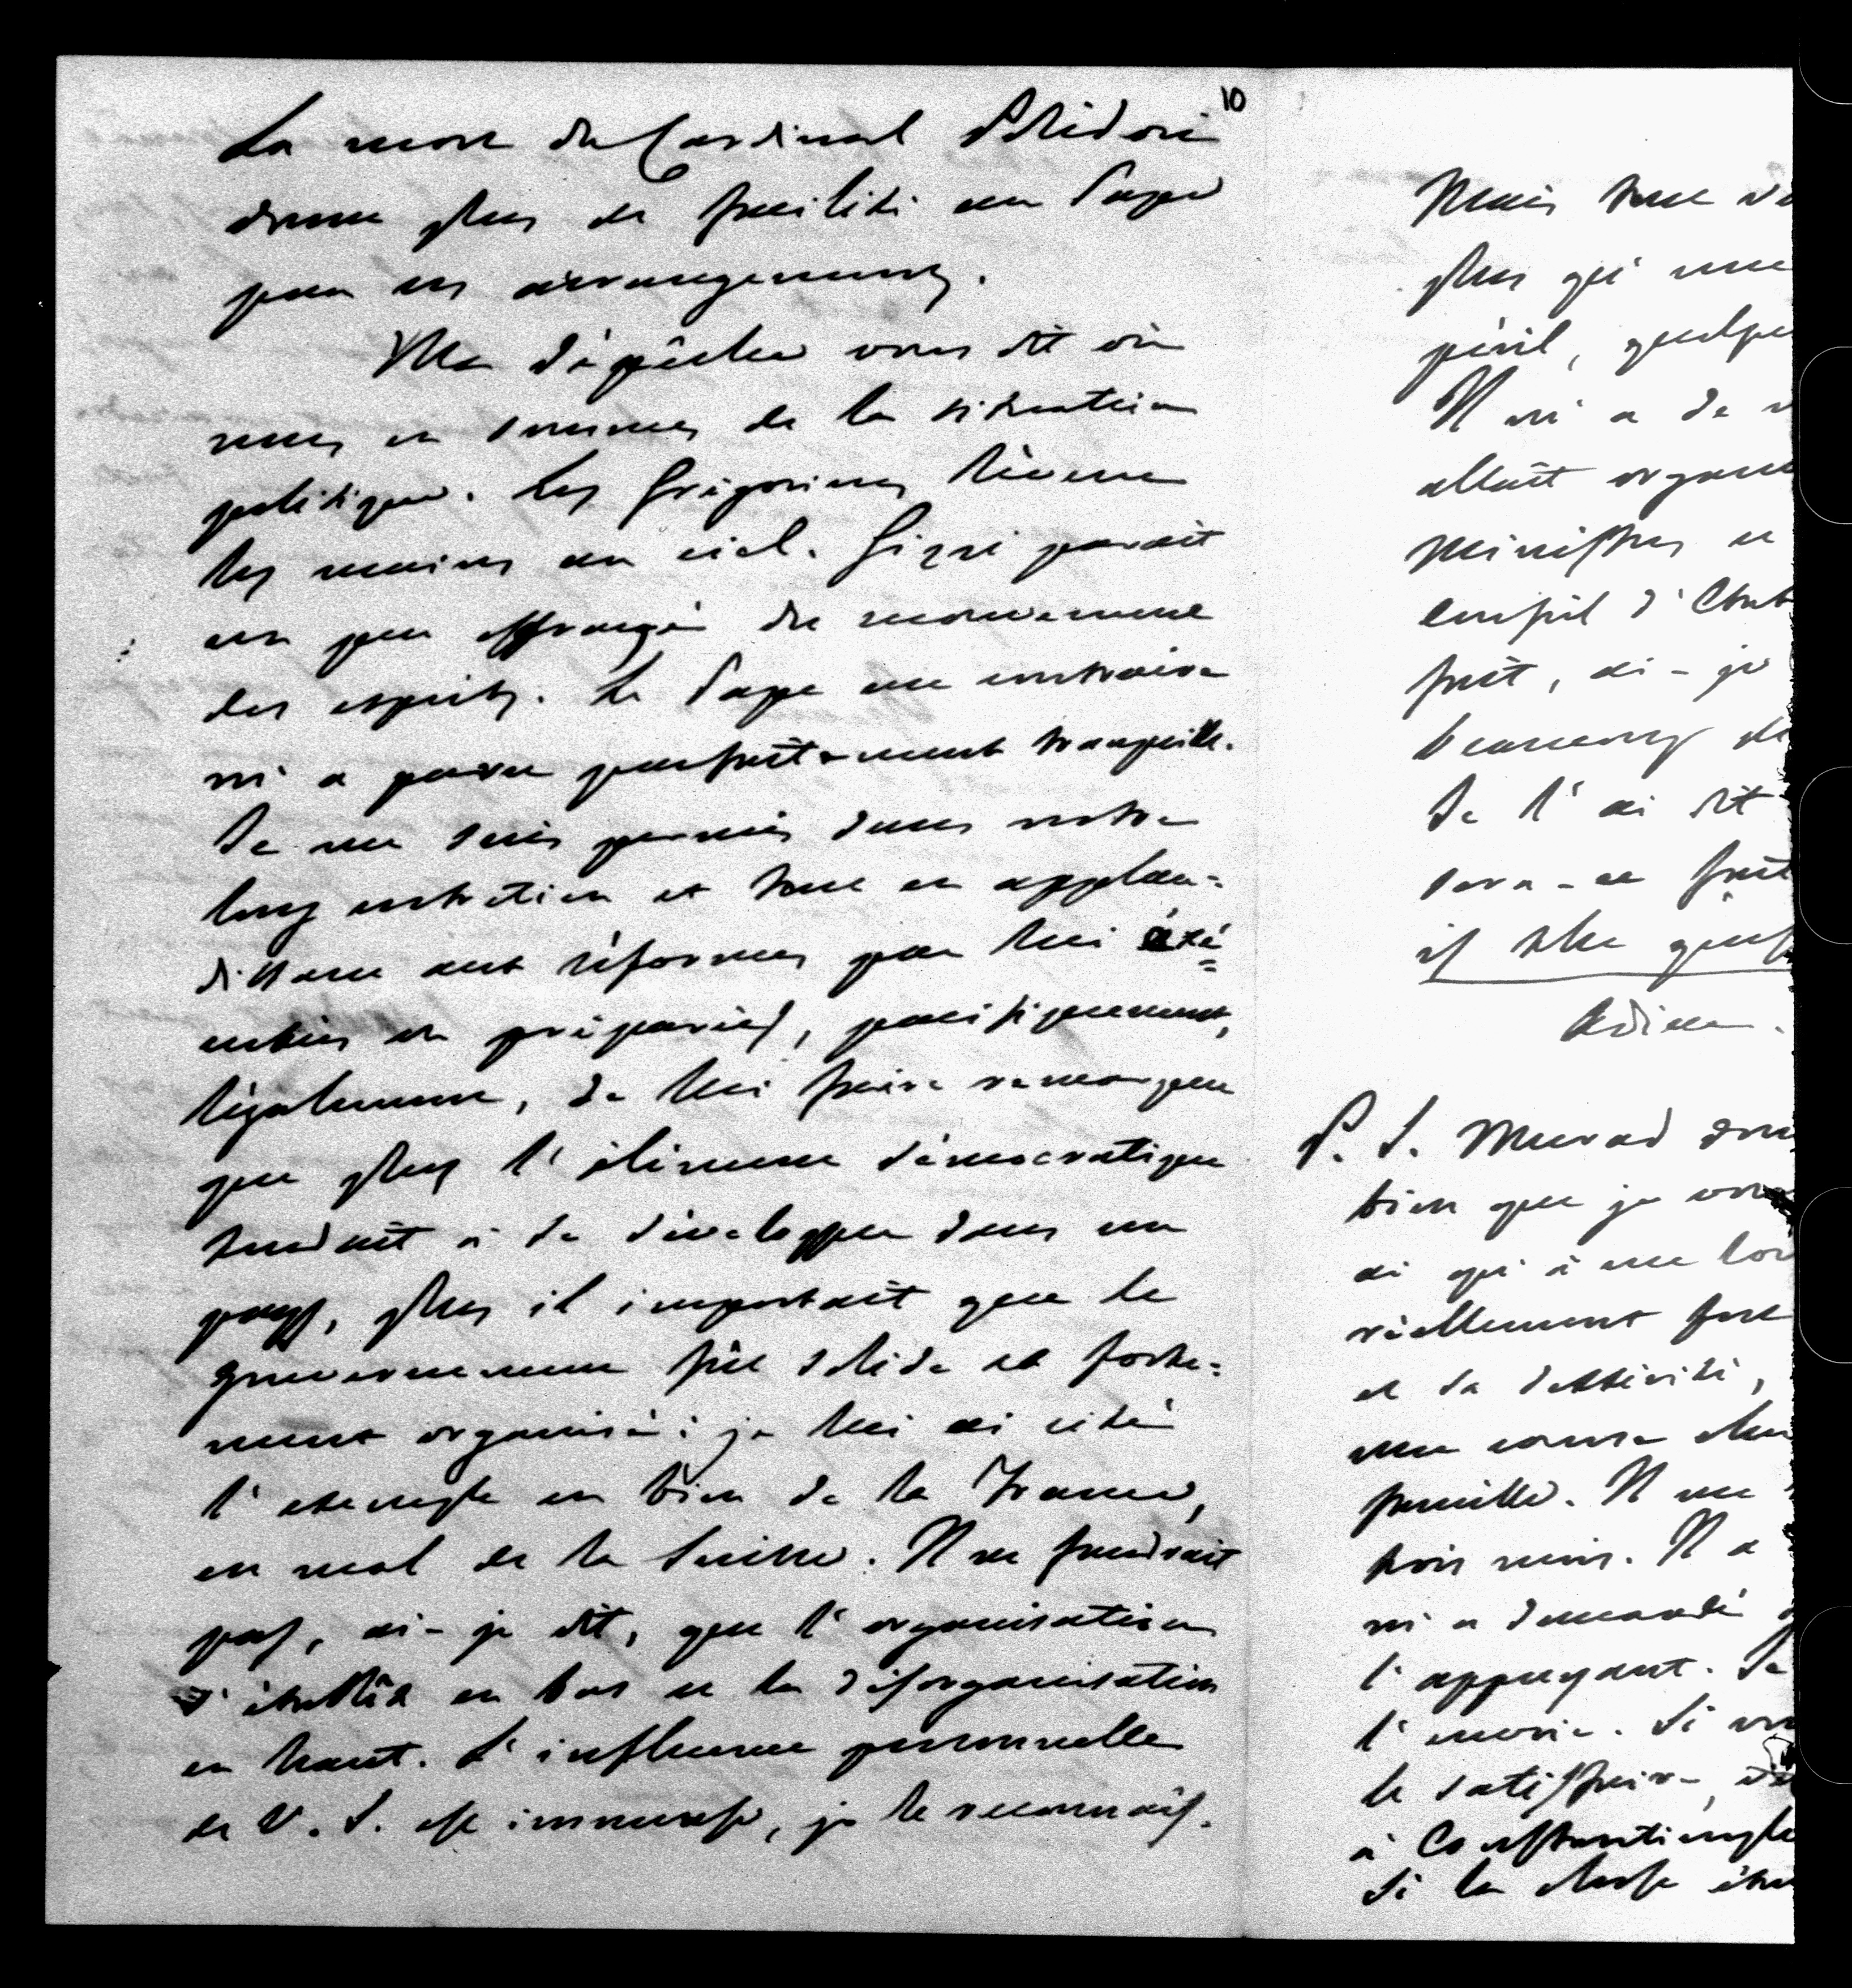 10
La mort du Cardinal Polidori
donne plus de facilité au Pape
pour ses arrangements.
Ma dépêche vous dit où
nous en sommes de la situation
politique. Les Grégoriens lèvent
les mains au ciel. Gizzi paraît
un peu effrayé du mouvement
des esprits. Le Pape au contraire
m'a paru parfaitement tranquille.
Je me suis permis dans notre
long entretien et tout en applau=
dissant aux réformes par lui exé=
cutées ou préparées, pacifiquement,
légalement, de lui faire remarquer
que plus l'élément démocratique
tendait à se développer dans un
pays, plus il importait que le
gouvernement fût solide et forte=
ment organisé: je lui ai cité
l'exemple en bien de la France,
en mal de la Suisse. Il ne faudrait
pas, ai-je dit, que l'organisation
s'établît en bas et la désorganisation
en haut. L'influence personnelle
de V. S. est immense, je le reconnais.
Mais tout
plus qu'une
péril, quelque
Il m'a
allait organ
Ministres et
Conseil d'Etat
fait, ai-je
beaucoup de
Je l'ai dit
sera-ce fait
is the
Adieu.
P. S. Murad
bien que je vous
ai qu'à me lou
réellement fort
et sa
une course chez
famille. Il me
trois mois. Il a
m'a demandé
l'appuyant. Je
l'envoie. Si vous
le satisfaire,
à Constantinople
Si la chose